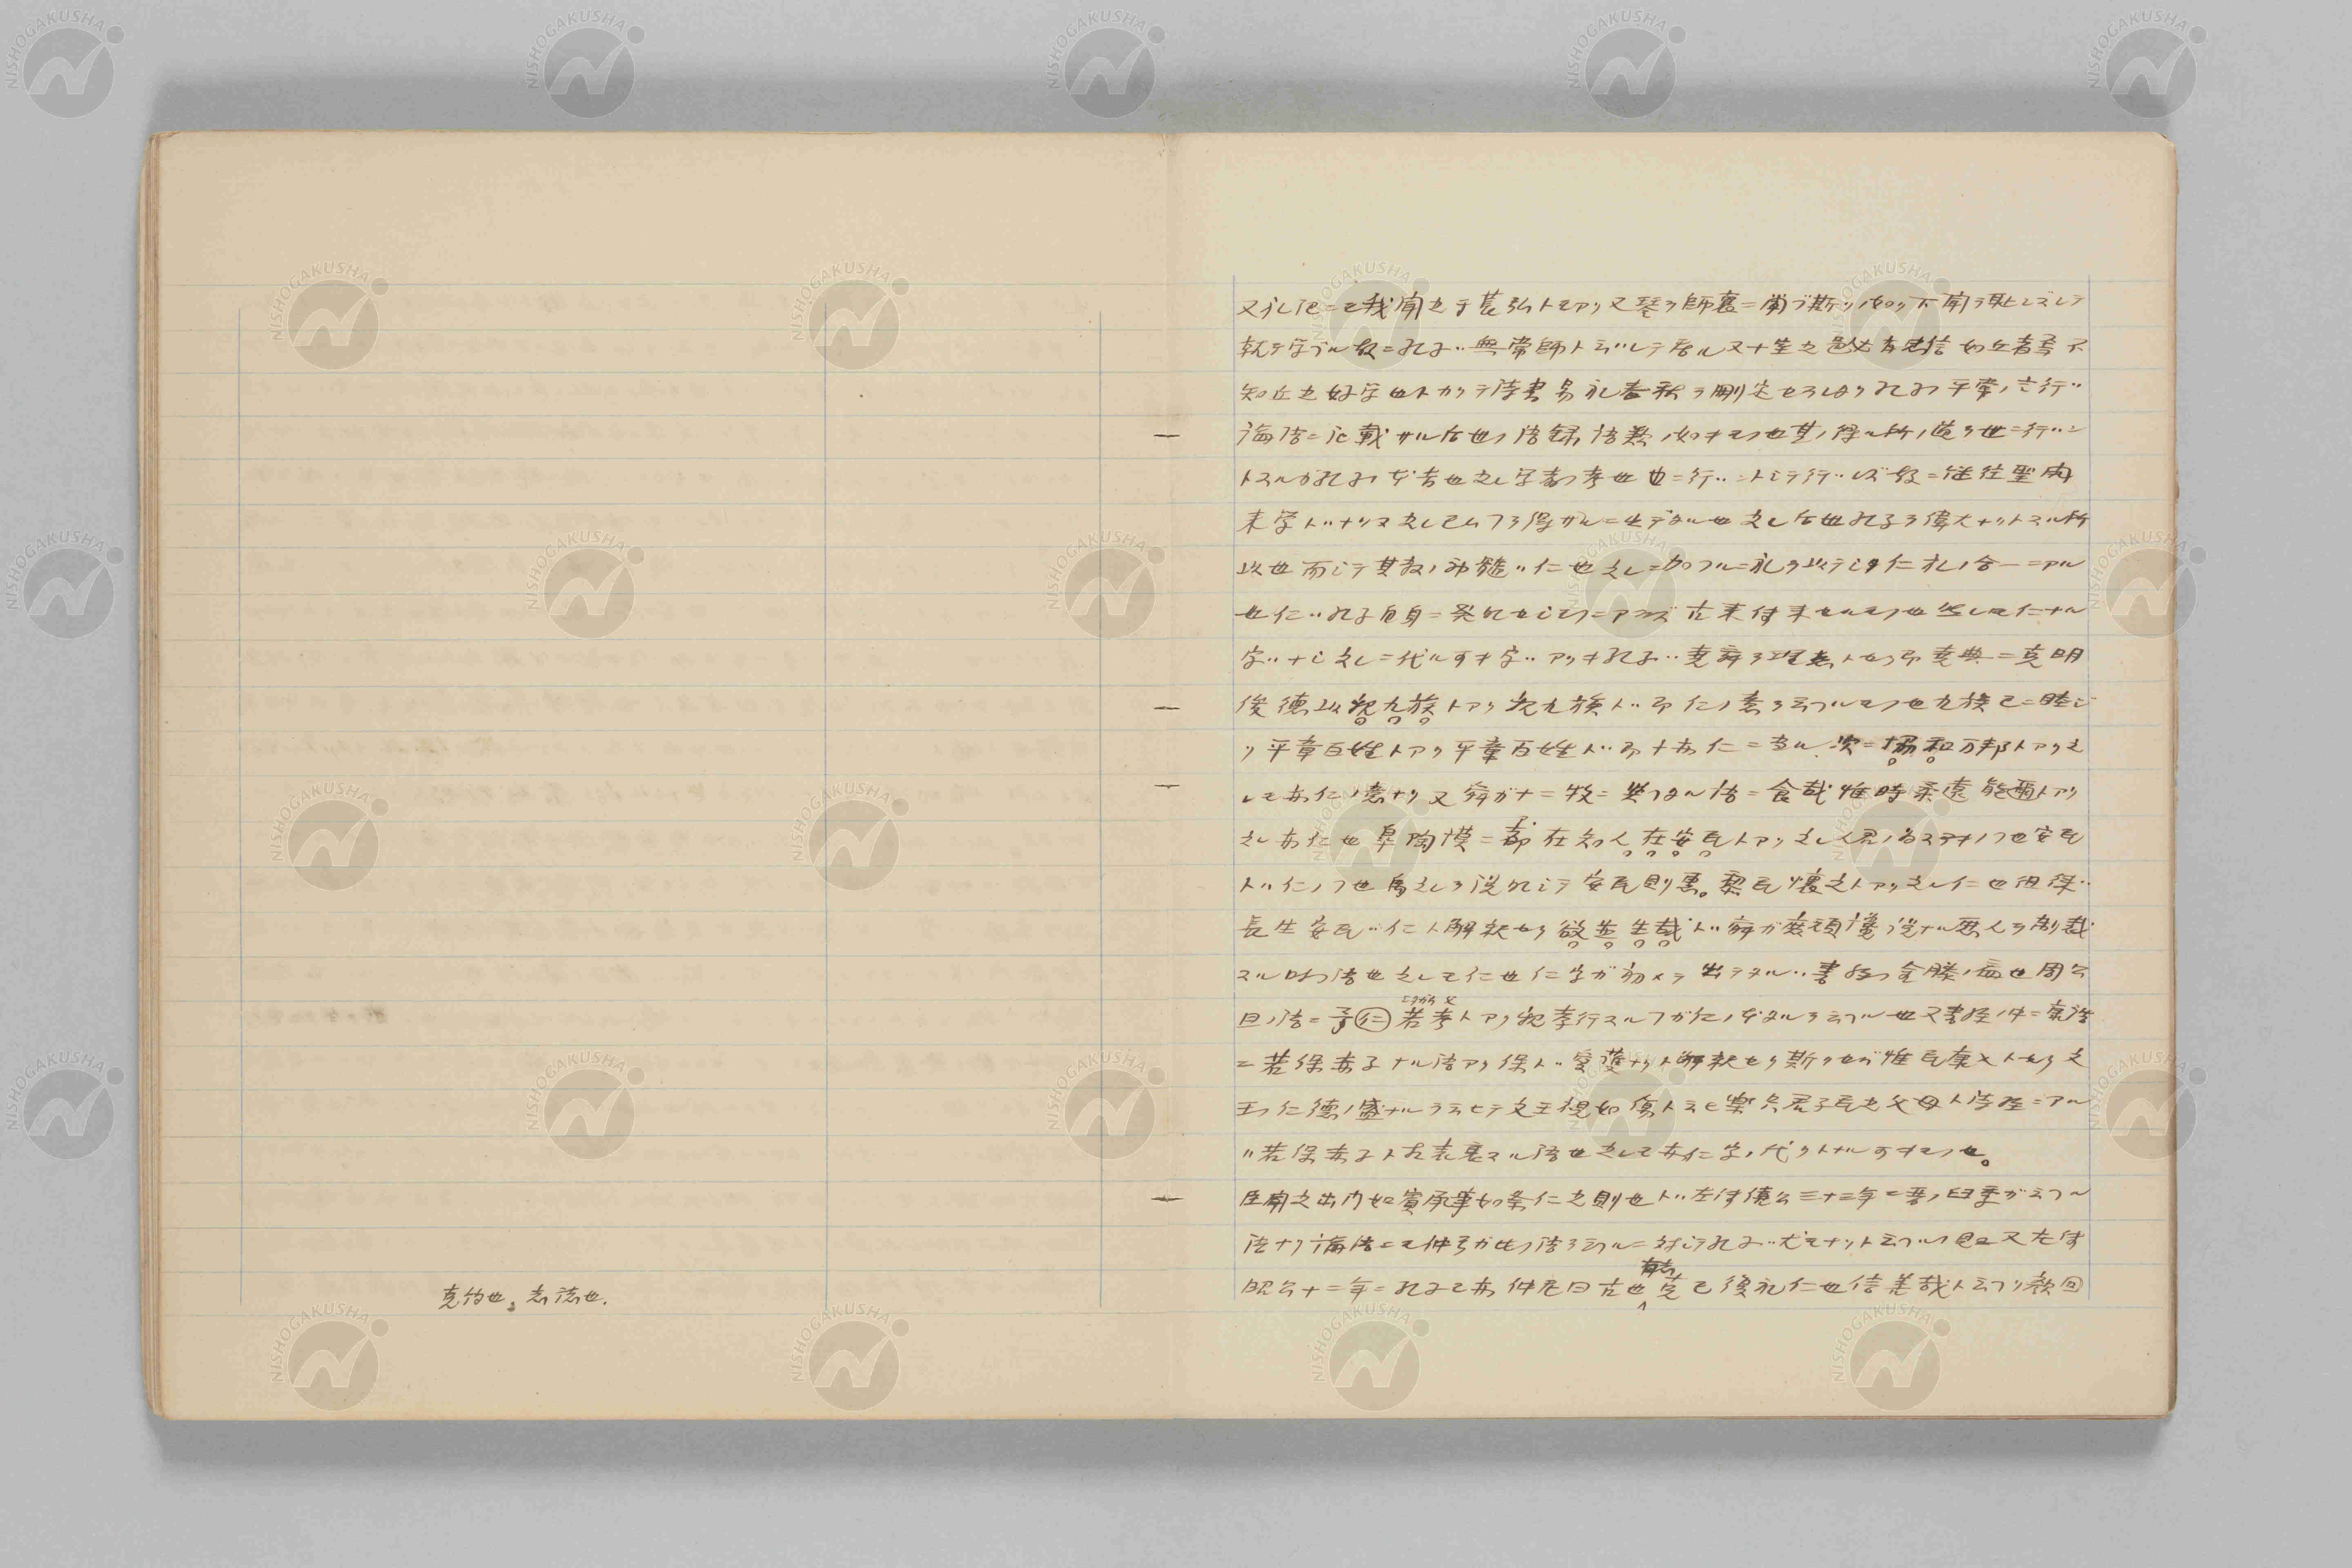 又礼記ニモ我聞之于萇弘トモアリ又琴ヲ師襄ニ聞ブ斯ノ如ク下問ヲ恥ヂズシテ
就テ学ブル故ニ孔子ハ無常師ト云ハレテ居ル又十室之邑必有忠信如丘者焉不
知丘之好学也トカツテ詩書易礼春秋ヲ刪定セラレタリ孔子ノ平常ノ言行ハ
論語ニ記載サル 也其ノ得ル所ノ道ヲ世ニ行ハン
トスルガ孔子ノ本旨也 行ハントシテ行ハレズ故ニ継往聖開
来学トハナリ 之レ 孔子ヲ偉大ナリトスル所
以也而シテ其教ノ神髄ハ仁也之レニ加フルニ礼ヲ以テシタリ仁礼ノ合一ニアル
也仁ハ孔子自身ニ発明セシモノニアラズ古来伝来セルモノ也然レ 仁ナル
字ハナシ之レニ代ルベキ字ハアリキ孔子ハ堯舜ヲ理想トセリ即堯典ニ克明
俊徳以親九族トアリ親九族トハ即仁ノ意ヲ云フルモノ也九族已ニ睦ジ
ク平章百姓トアリ平章百姓トハ即チ亦仁ニ当ル次ニ協和万邦トアリ之
レモ亦仁ノ意ナリ又舜ガ十二牧ニ与フタル語ニ食哉惟時柔遠能邇トアリ
之レ亦仁也皐陶謨ニ都在知人在安民トアリ之レ人君ノ為スベキノフ也安民
トハ仁ノフ也禹之レヲ説明シテ安民則恵。黎民懐之トアリ之レ仁也但徠ハ
長生安民ハ仁ト解釈セリ欲並生哉トハ舜ガ庶頑讒説ナル悪人ヲ制裁
スル時ノ語也之レモ仁也仁字ガ初メテ出テタルハ書経ノ金縢ノ篇也周公
旦ノ語ニ予仁若考トアリ親孝行スルフガ仁ノ本タルヲ云フル也又書経ノ中ニ康誥
ニ若保赤子ナル語アリ保トハ愛護ナリト解釈セリ斯クセバ惟民康乂トセリ文
王ノ仁徳ノ盛ナルヲ云ヒテ文王視如傷ト云ヒ楽只君子民之父母ト詩経ニアル
ハ若保赤子ト相表裏スル語也之レモ亦仁字ノ代リトナルベキモノ也。
臣聞之出門如賓承事如祭仁之則也トハ左伝僖公三十三年ニ晋ノ臼季ガ云フル
語ナリ論語ニモ仲弓ガ此ノ語ヲ云フルニ対シテ孔子ハ 云フル 又左伝
昭公十二年ニ孔子モ亦仲尼曰古也有志克己復礼仁也信善哉ト云フリ顔回
克約也。志 也.